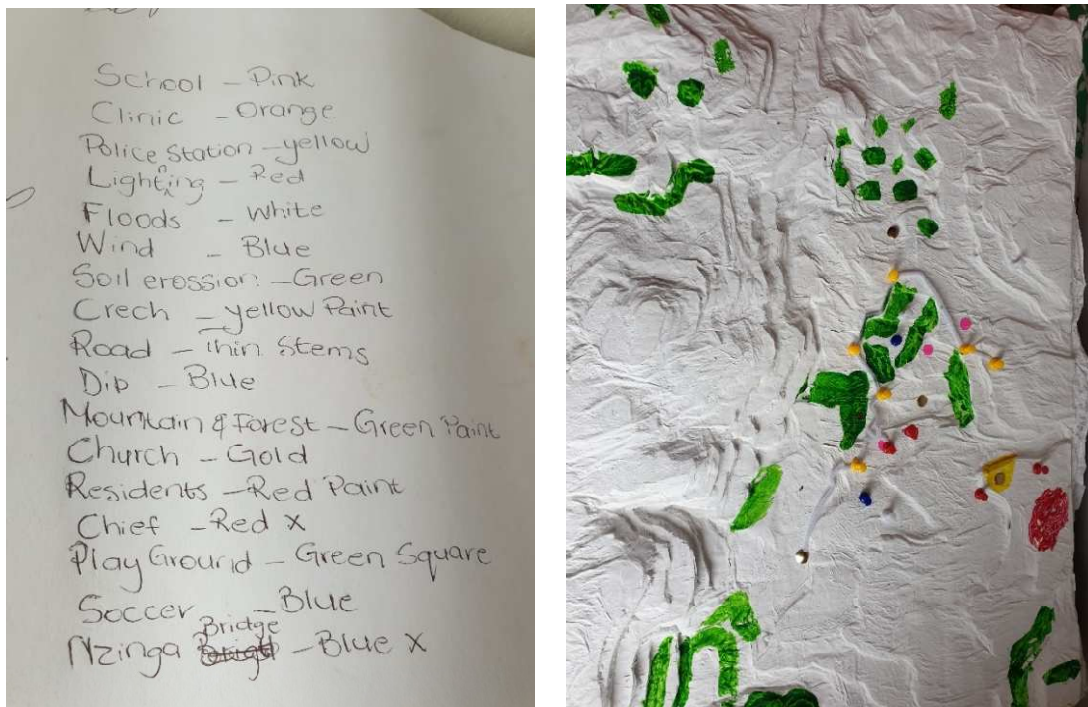 School - Pink
Clinic - Orange
Police Station - yellow
Lightning - Red
Floods - White
Wind - Blue
Soil erossion - Green
Crech - yellow Paint
Road - thin Stems
Dip - Blue
Mountain & Forest - Green Paint
Church - Gold
Residents - Red Paint
Chief - Red X
Play Ground - Green Square
Soccer - Blue
Nzinga Bridge - Blue X